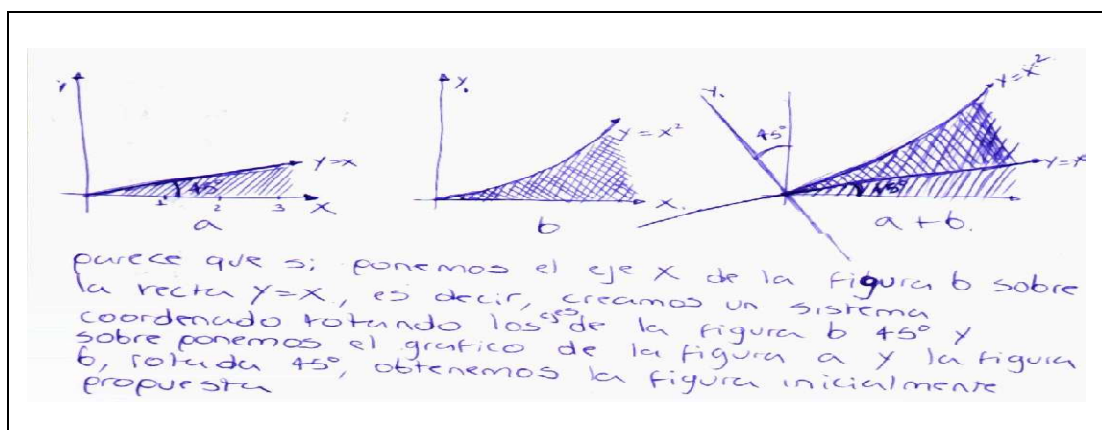 y y. y. y=x²
45°
y=x y=x²
45° 45° y=x
1 2 3 x x.
a b a+b.
parece que si ponemos el eje x de la figura b sobre
la recta y=x, es decir, creamos un sistema
coordenado rotando los ejes de la figura b 45° y
sobre ponemos el grafico de la figura a y la figura
b, rotada 45°, obtenemos la figura inicialmente
propuesta